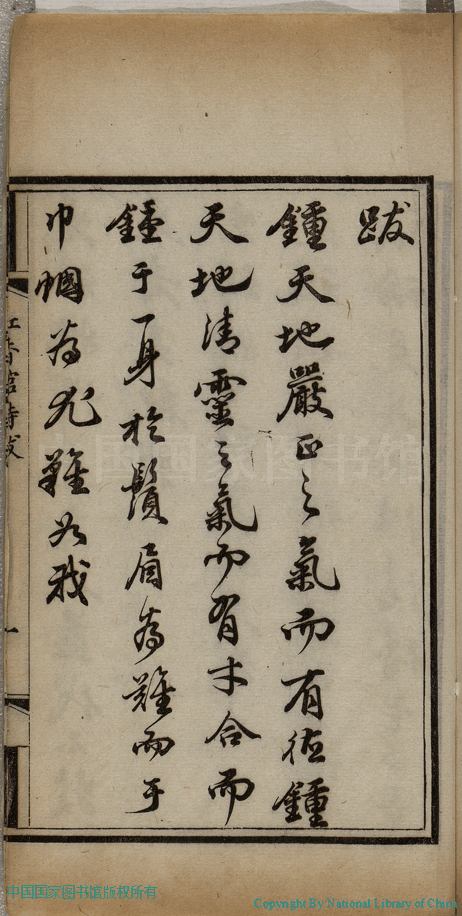 跋
鍾天地嚴正之氣而有德鍾
天地清靈之氣而有才合而
鍾于一身於鬚眉為難而于
巾幗為尤難如我
詩跋
一
中国国家图书馆
中国国家图书馆版权所有
Copyright By National Library of China